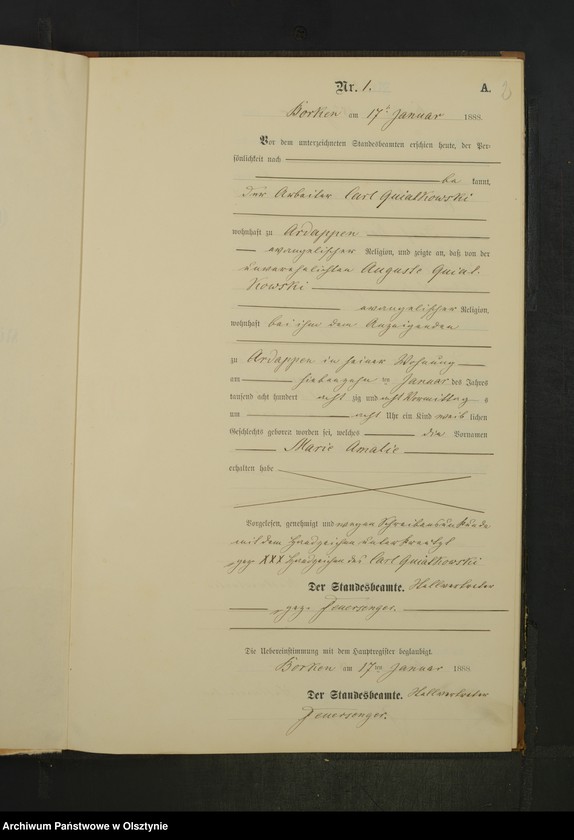 Nr. 1.
A.
Borken am 17t Januar 1888.
Vor dem unterzeichneten Standesbeamten erschien heute, der Per-
sönlichkeit nach
be kannt,
der Arbeiter Carl Quiatkowski
wohnhaft zu Ardappen
evangelischer Religion, und zeigte an, daß von der
unverehelichten Auguste Quiat-
kowski
evangelischer Religion,
wohnhaft bei ihm dem Anzeigenden
zu Ardappen in seiner Wohnung
am siebenzehn ten Januar des Jahres
tausend acht hundert acht zig und acht Vormittag s
um acht Uhr ein Kind weib lichen
Geschlechts geboren worden sei, welches die Vornamen
Marie Amalie
erhalten habe
Vorgelesen, genehmigt und wegen Schreibensunkunde
mit dem Handzeichen unterkreuzt
gez XXX Handzeichen des Carl Quiatkowski
Der Standesbeamte.
gez. Feuersenger.
Die Uebereinstimmung mit dem Hauptregister beglaubigt.
Borken am 17ten Januar 1888.
Der Standesbeamte.
Feuersenger.
Archiwum Państwowe w Olsztynie